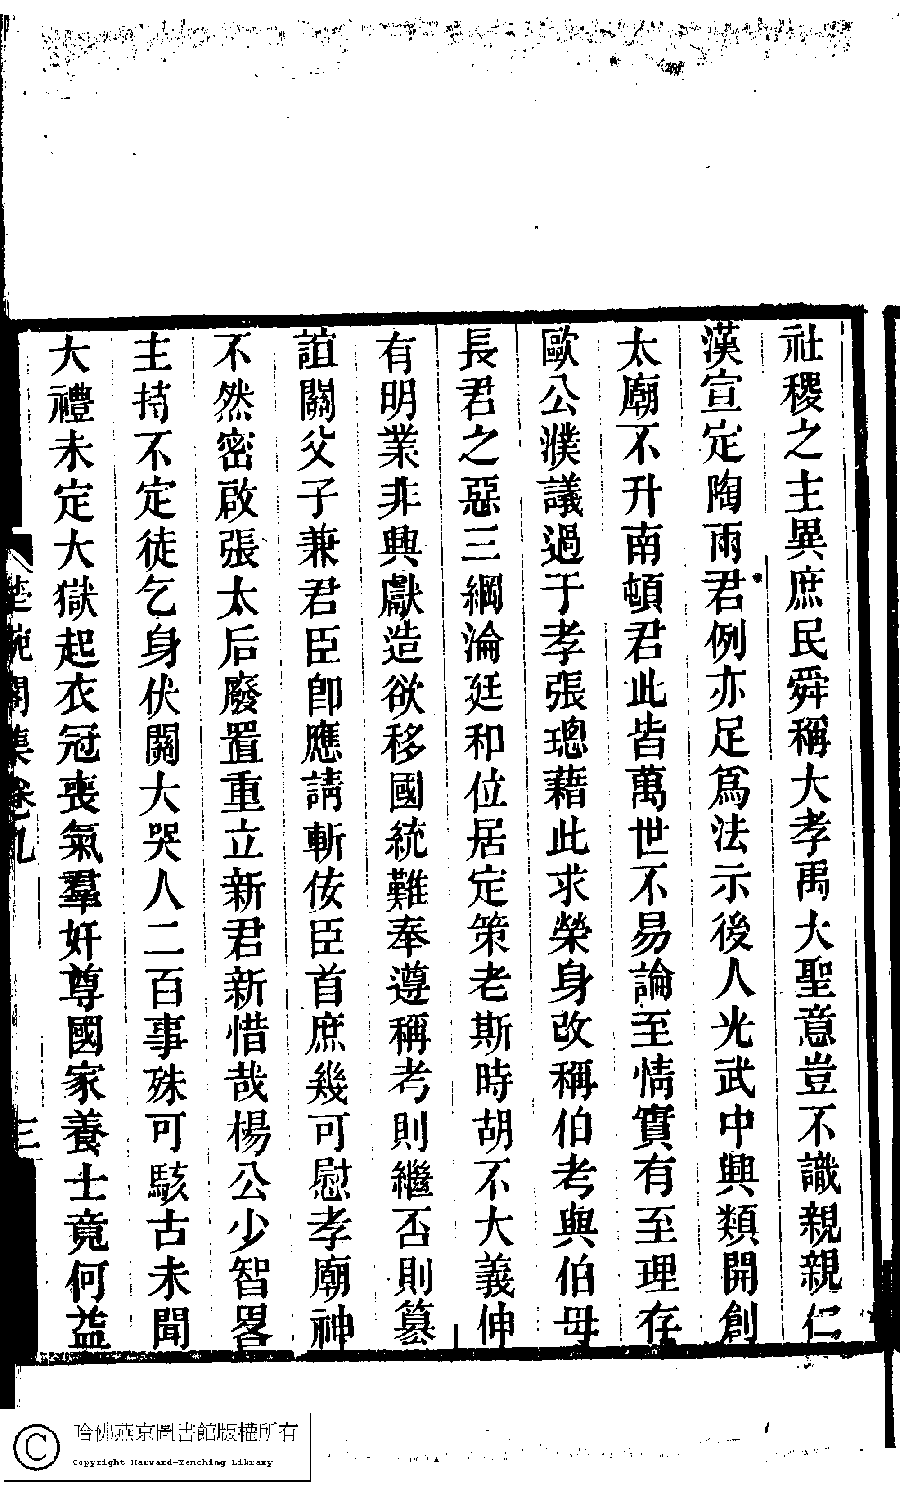 社稷之主異庶民舜稱大孝禹大聖意豈不識親親仁
漢宣定陶兩君例亦足爲法示後人光武中興類開創
太廟不升南頓君此皆萬世不易論至情實有至理存
歐公濮議過于孝張璁藉此求榮身改稱伯考與伯母
長君之惡三綱淪廷和位居定策老斯時胡不大義伸
有明業非興獻造欲移國統難奉遵稱考則繼否則篡
誼關父子兼君臣卽應請斬佞臣首庶幾可慰孝廟神
不然密啟張太后廢置重立新君新惜哉楊公少智畧
主持不定徒乞身伏闕大哭人二百事殊可駭古未聞
大禮未定大獄起衣冠喪氣羣奸尊國家養士竟何益
集卷九
三
哈佛燕京圖書館版權所有
Copyright Harvard-Yenching Library